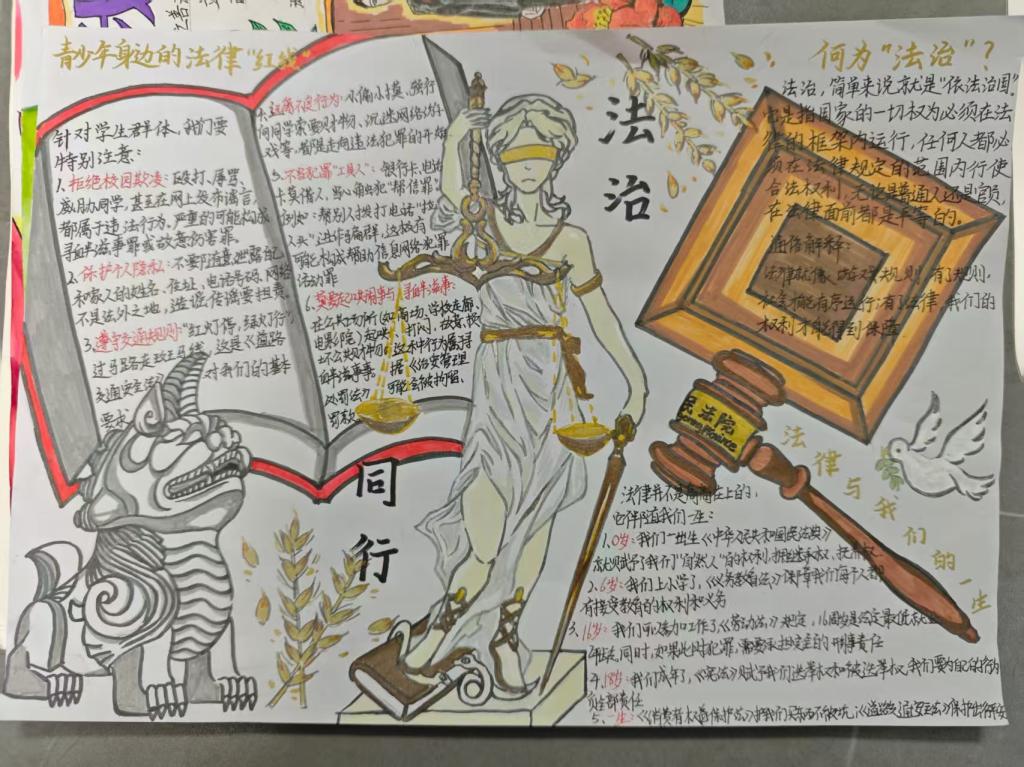 青少年身边的法律"红线"
针对学生群体,我们要
特别注意:
1、拒绝校园欺凌:殴打、辱骂、
威胁同学,甚至在网上发布谣言,
都属于违法行为,严重的可能构成
寻衅滋事罪或故意伤害罪。
2、保护个人隐私:不要随意泄露自己
和家人的姓名、住址、电话号码,网络
不是法外之地,造谣传谣要担责。
3、遵守交通规则:"红灯停,绿灯行",
过马路走斑马线,这是《道路
交通安全法》对我们的基本
要求
4、远离不良行为:小偷小摸、强行
向同学索要财物、沉迷网络游
戏等,都是走向违法犯罪的开始
5、不当犯罪"工具人":银行卡、电话
卡莫借人,当心触犯"帮信罪"
例如:帮别人拨打电话"拉
人头"进诈骗群,这极有
可能构成帮助信息网络犯罪
活动罪
6、
在公共场所(如商场、学校走廊、
电影院)起哄、打闹、
坏公共财物,这种行为属于寻
衅滋事。据《治安管理
处罚法》可能会被拘留、
罚款
法治
同行
何为"法治"?
法治,简单来说就是"依法治国"
它是指国家的一切权力必须在法
律的框架内运行,任何人都必
须在法律规定的范围内行使
合法权利,无论是普通人还是官员,
在法律面前都是平等的。
通俗解释:
法律就像 规则,有了规则,
社会才能有序运行;有了法律,我们的
权利才能得到保障
民法院
法律与我们的一生
法律并不是高高在上的,
它伴随我们一生:
1、0岁:我们一出生《中华人民共和国民法典》
就赋予了我们"自然人"的权利,
2、6岁:我们上小学了,《义务教育法》保障我们每个人都
有接受教育的权利和义务
3、16岁:我们可以参加工作了,《劳动法》规定,16周岁是法定最低就业
年龄,同时,如果此时犯罪,需要承担完全的刑事责任
4、18岁:我们成年了,《宪法》赋予我们选举权和被选举权,我们要为自己的行为
负全部责任
5、一生:《消费者权益保护法》护我们买东西不被坑;《道路交通安全法》保护出行